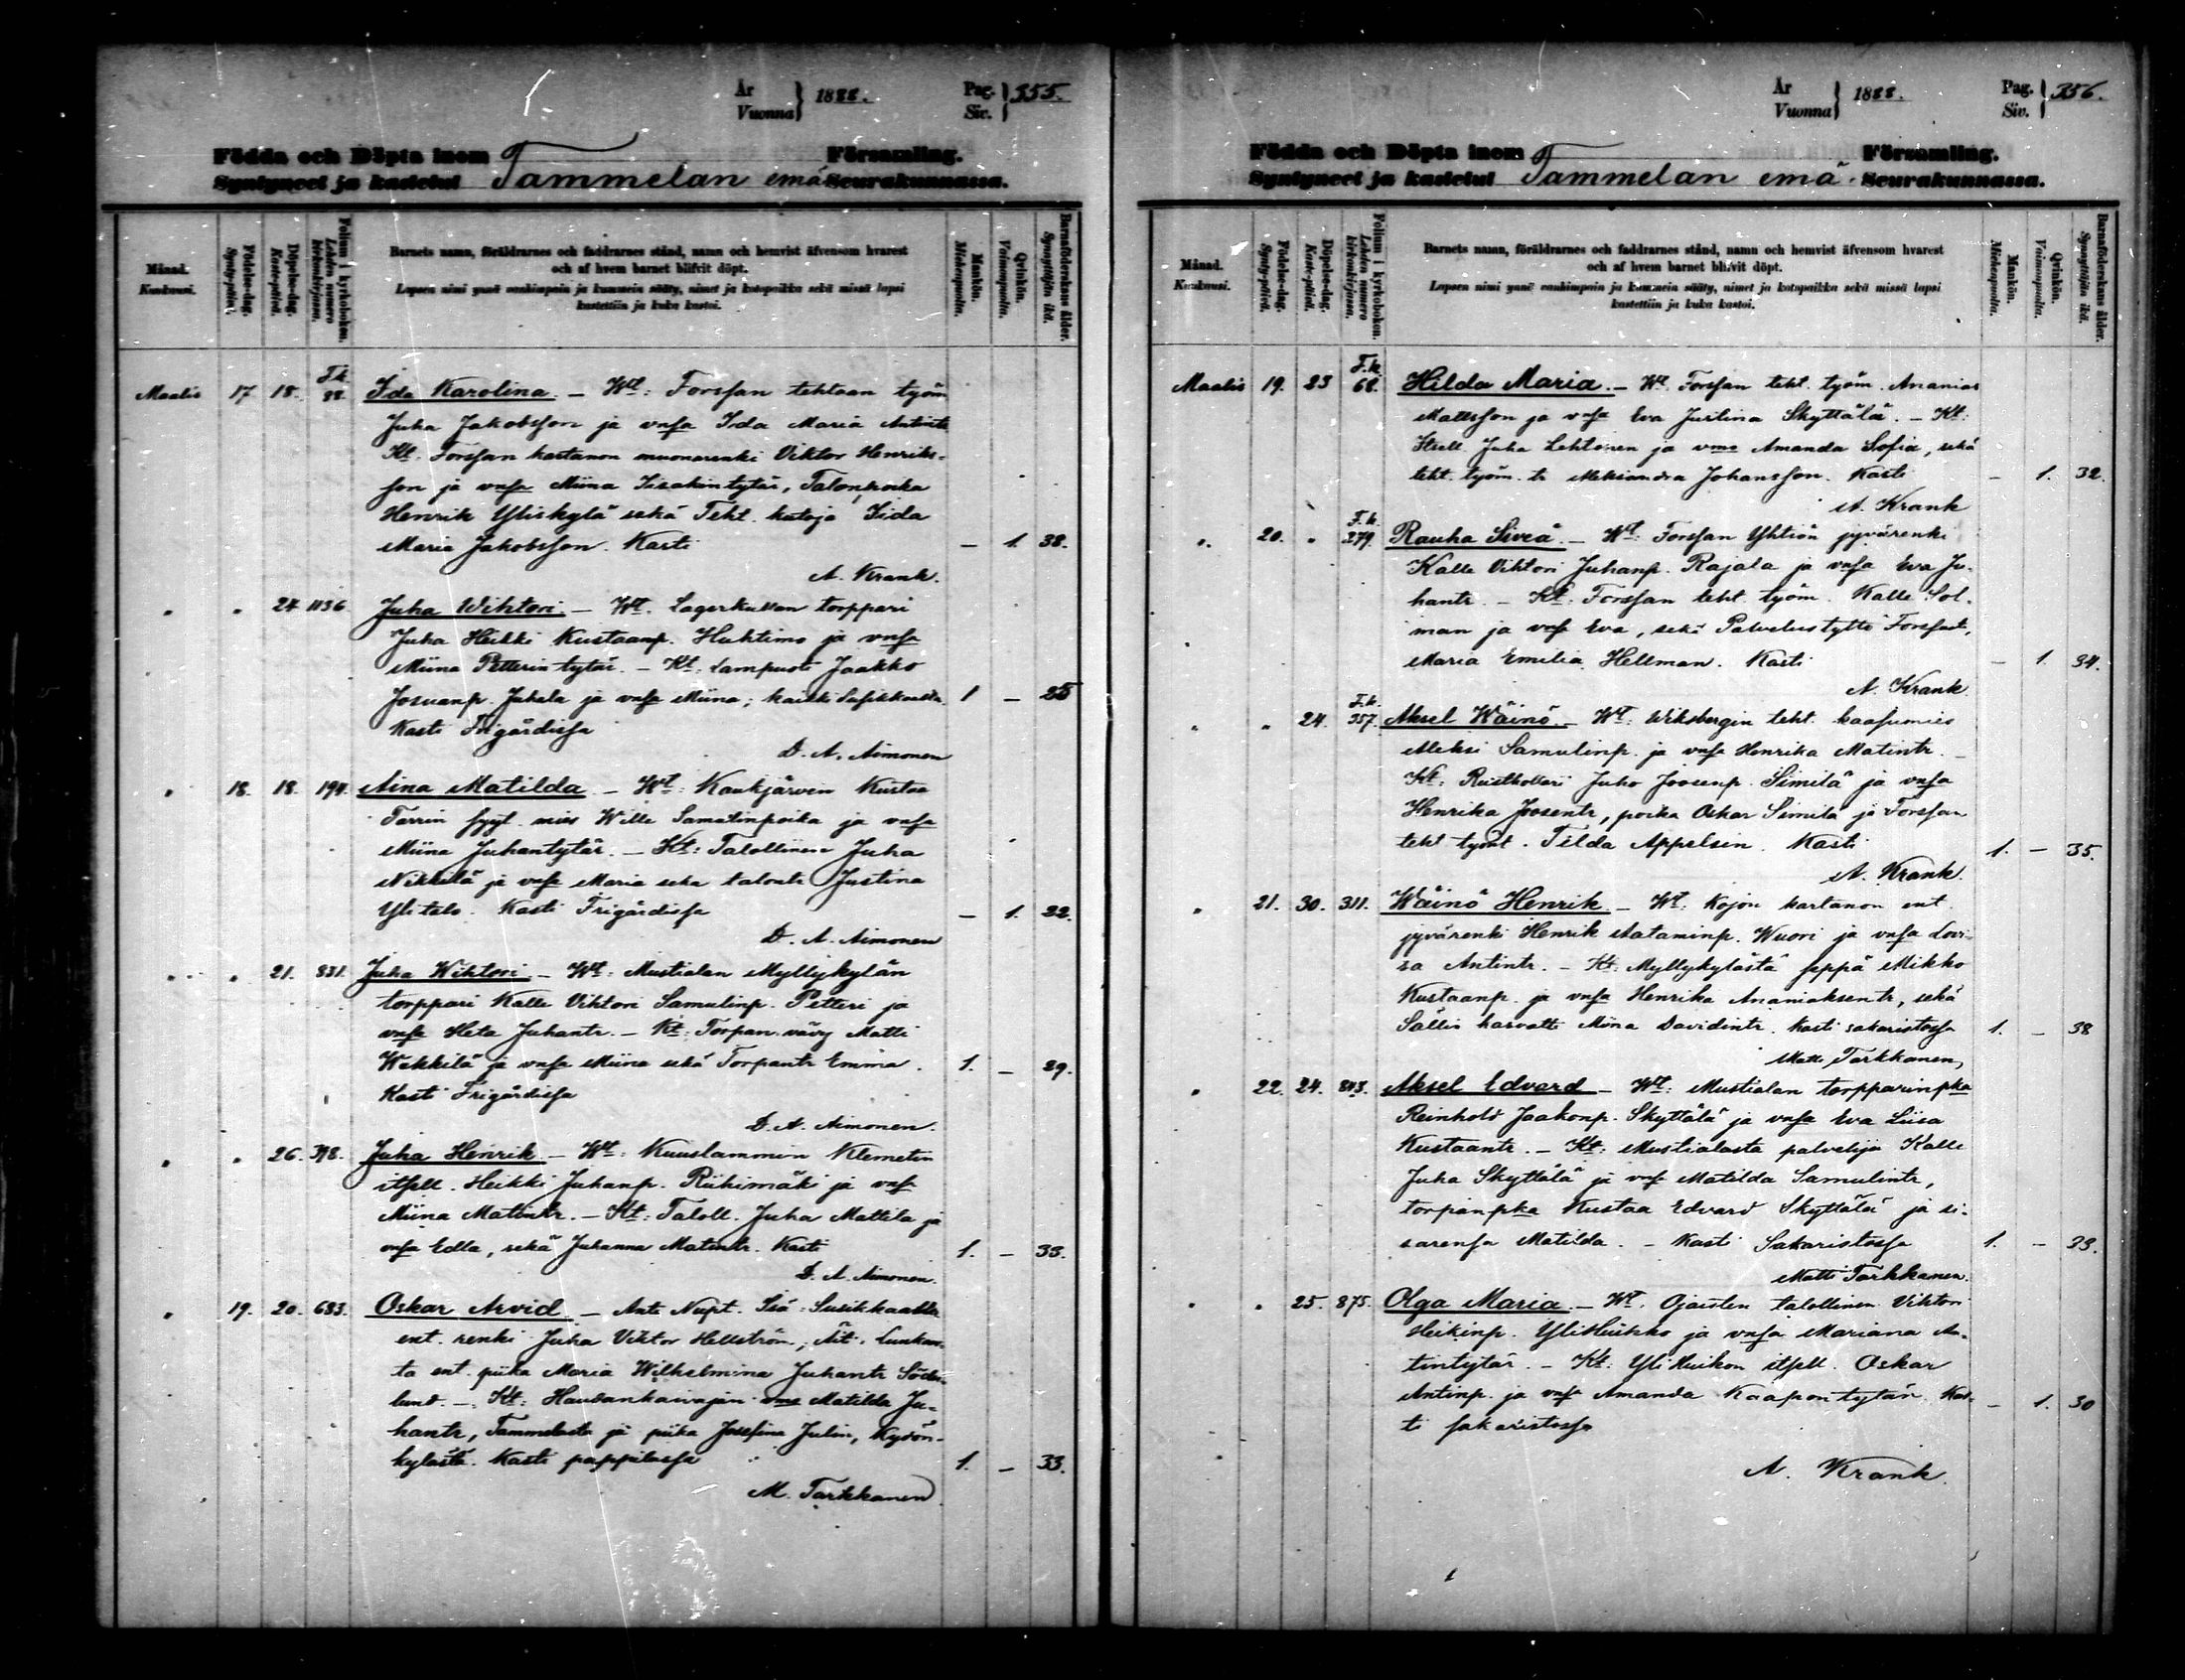 År
Vuonna } 1888.
Pag.
Siv. } 355.
Födda och Döpta inom Församling.
Syntyneet ja kastetut Tammelan emä Seurakunnassa.
Månad.
Kuukausi.
Födelse-dag.
Synty-päivä.
Döpelse-dag.
Kaste-päivä.
Folium i kyrkoboken.
Lehden numero kirkonkirjassa.
Barnets namn, föräldrarnes och faddrarnes stånd, namn och hemvist äfvensom hvarest
och af hvem barnet blifvit döpt.
Lapsen nimi ynnä vanhimpain ja kummein sääty, nimet ja kotopaikka sekä missä lapsi
kastettiin ja kuka kastoi.
Mankön.
Miehenpuolia.
Qvinkön.
Vaimonpuolia.
Barnaföderskans ålder.
Synnyttäjän ikä.
Maalis 17 18. F.k. 88. Ida Karolina. – Wt: Forssan tehtaan työm
Juha Jakobsson ja vmsa Ida Maria Antintr
Kt. Forssan kartanon muonarenki Viktor Henriks-
son ja vmsa Miina Iisakintytär, Talonpoika
Henrik Yliskylä sekä Teht. kutoja Iida
Maria Jakobsson. Kasti – 1. 38.
A. Krank.
" " 24 1136. Juha Wihtori. – Wt. Lagerkullan torppari
Juha Heikki Kustaanp. Huhtimo ja vmsa
Miina Petterintytär. – Kt: Lampuoti Jaakko
Josuanp. Juhala ja vmsa Miina; kaikki Susikkaalta. 1 – 25
Kasti Frigårdissa
D. A. Aimonen
" 18. 18. 194. Aina Matilda – Wt: Kaukjärven Kustaa
Torrin syyt. mies Wille Samulinpoika ja vmsa
Miina Juhantytär. – Kt: Talollinen Juha
Nikkilä ja vmsa Maria sekä talontr Justina
Ylitalo. Kasti Frigårdissa – 1. 22.
D. A. Aimonen
" " 21. 831. Juha Wihtori – Wt: Mustialan Myllykylän
torppari Kalle Vihtori Samulinp. Petteri ja
vmsa Heta Juhantr. – Kt: Torpan vävy Matti
Wekkilä ja vmsa Miina sekä Torpantr Emma. 1. – 29.
Kasti Frigårdissa
D. A. Aimonen.
" " 26. 398. Juha Henrik – Wt: Kuuslammin Klemetin
itsell. Heikki Juhanp. Riihimäki ja vmsa
Miina Matintr. – Kt: Taloll. Juha Mattila ja
vmsa Edla, sekä Juhanna Matintr. Kasti 1. – 33.
D. A. Aimonen.
" 19. 20. 683. Oskar Arvid – Ante Nupt. Isä: Susikkaalta
ent. renki Juha Viktor Hellström; Äit.
ta ent. piika Maria Wilhelmina Juhantr Söder-
lund. – Kt: Haudankaivajan vmo Matilda Ju-
hantr, Tammelasta ja piika Josefina Julin, Kydön-
kylästä. Kasti pappilassa 1. – 33.
M. Tarkkanen
År
Vuonna } 1888.
Pag.
Siv. } 356.
Födda och Döpta inom Församling.
Syntyneet ja kastetut Tammelan emä Seurakunnassa.
Månad.
Kuukausi.
Födelse-dag.
Synty-päivä.
Döpelse-dag.
Kaste-päivä.
Folium i kyrkoboken.
Lehden numero kirkonkirjassa.
Barnets namn, föräldrarnes och faddrarnes stånd, namn och hemvist äfvensom hvarest
och af hvem barnet blifvit döpt.
Lapsen nimi ynnä vanhimpain ja kummein sääty, nimet ja kotopaikka sekä missä lapsi
kastettiin ja kuka kastoi.
Mankön.
Miehenpuolia.
Qvinkön.
Vaimonpuolia.
Barnaföderskans ålder.
Synnyttäjän ikä.
Maalis 19. 23 F.k. 68. Hilda Maria. – Wt. Forssan teht. työm. Ananias
Mattsson ja vmsa Eva Justina Skyttälä. – Kt:
Itsell. Juha Lehtonen ja vmo Amanda Sofia, sekä
teht. työm. tr Aleksandra Johansson. Kasti – 1. 32.
A. Krank
" 20. " F.k. 279. Rauha Siveä. – Wt: Forssan Yhtiön jyvärenki
Kalle Vihtori Juhanp. Rajala ja vmsa Eva Ju-
hantr. – Kt: Forssan teht työm. Kalle Sol-
man ja vmsa Eva, sekä Palvelustyttö Forssast,
Maria Emilia Hellman. Kasti – 1. 34.
A. Krank
" " 24. F.k. 357. Aksel Wäinö. – Wt: Wiksbergin teht. kaasumies
Aleksi Samulinp. ja vmsa Henrika Matintr. –
Kt: Rustkollari Juho Joosenp. Simila ja vmsa
Henrika Joosentr, poika Oskar Simila ja Forssan
teht työnt. Tilda Appelsin. Kasti 1. – 35.
A. Krank.
" 21. 30. 311. Wäinö Henrik – Wt: Kojon kartanon ent.
jyvärenki Henrik Aataminp. Wuori ja vmsa Lovi-
sa Antintr. – Kt: Myllykylästä seppä Mikko
Kustaanp. ja vmsa Henrika Ananiaksentr, sekä
Sällin karvatti Miina Davidintr. Kasti sakaristossa 1. – 38
Matti Tarkkanen,
" 22. 24. 843. Aksel Edvard – Wt: Mustialan torpparinpka
Reinhold Jaakonp. Skyttälä ja vmsa Eva Liisa
Kustaantr. – Kt: Mustialasta palvelija Kalle
Juha Skyttälä ja vmsa Matilda Samulintr,
torpanpka Kustaa Edvard Skyttälä ja si-
sarensa Matilda. – Kasti Sakaristossa 1. – 23.
Matti Tarkkanen.
" " 25. 875. Olga Maria. – Wt. Ojaisten talollinen Vihtori
Heikinp. YliHuikko ja vmsa Mariana An-
tintytär. – Kt: YliHuikon itsell. Oskar
Antinp. ja vmsa Amanda Kaapontytär. Kas- – 1. 30
ti sakaristossa
A. Krank.